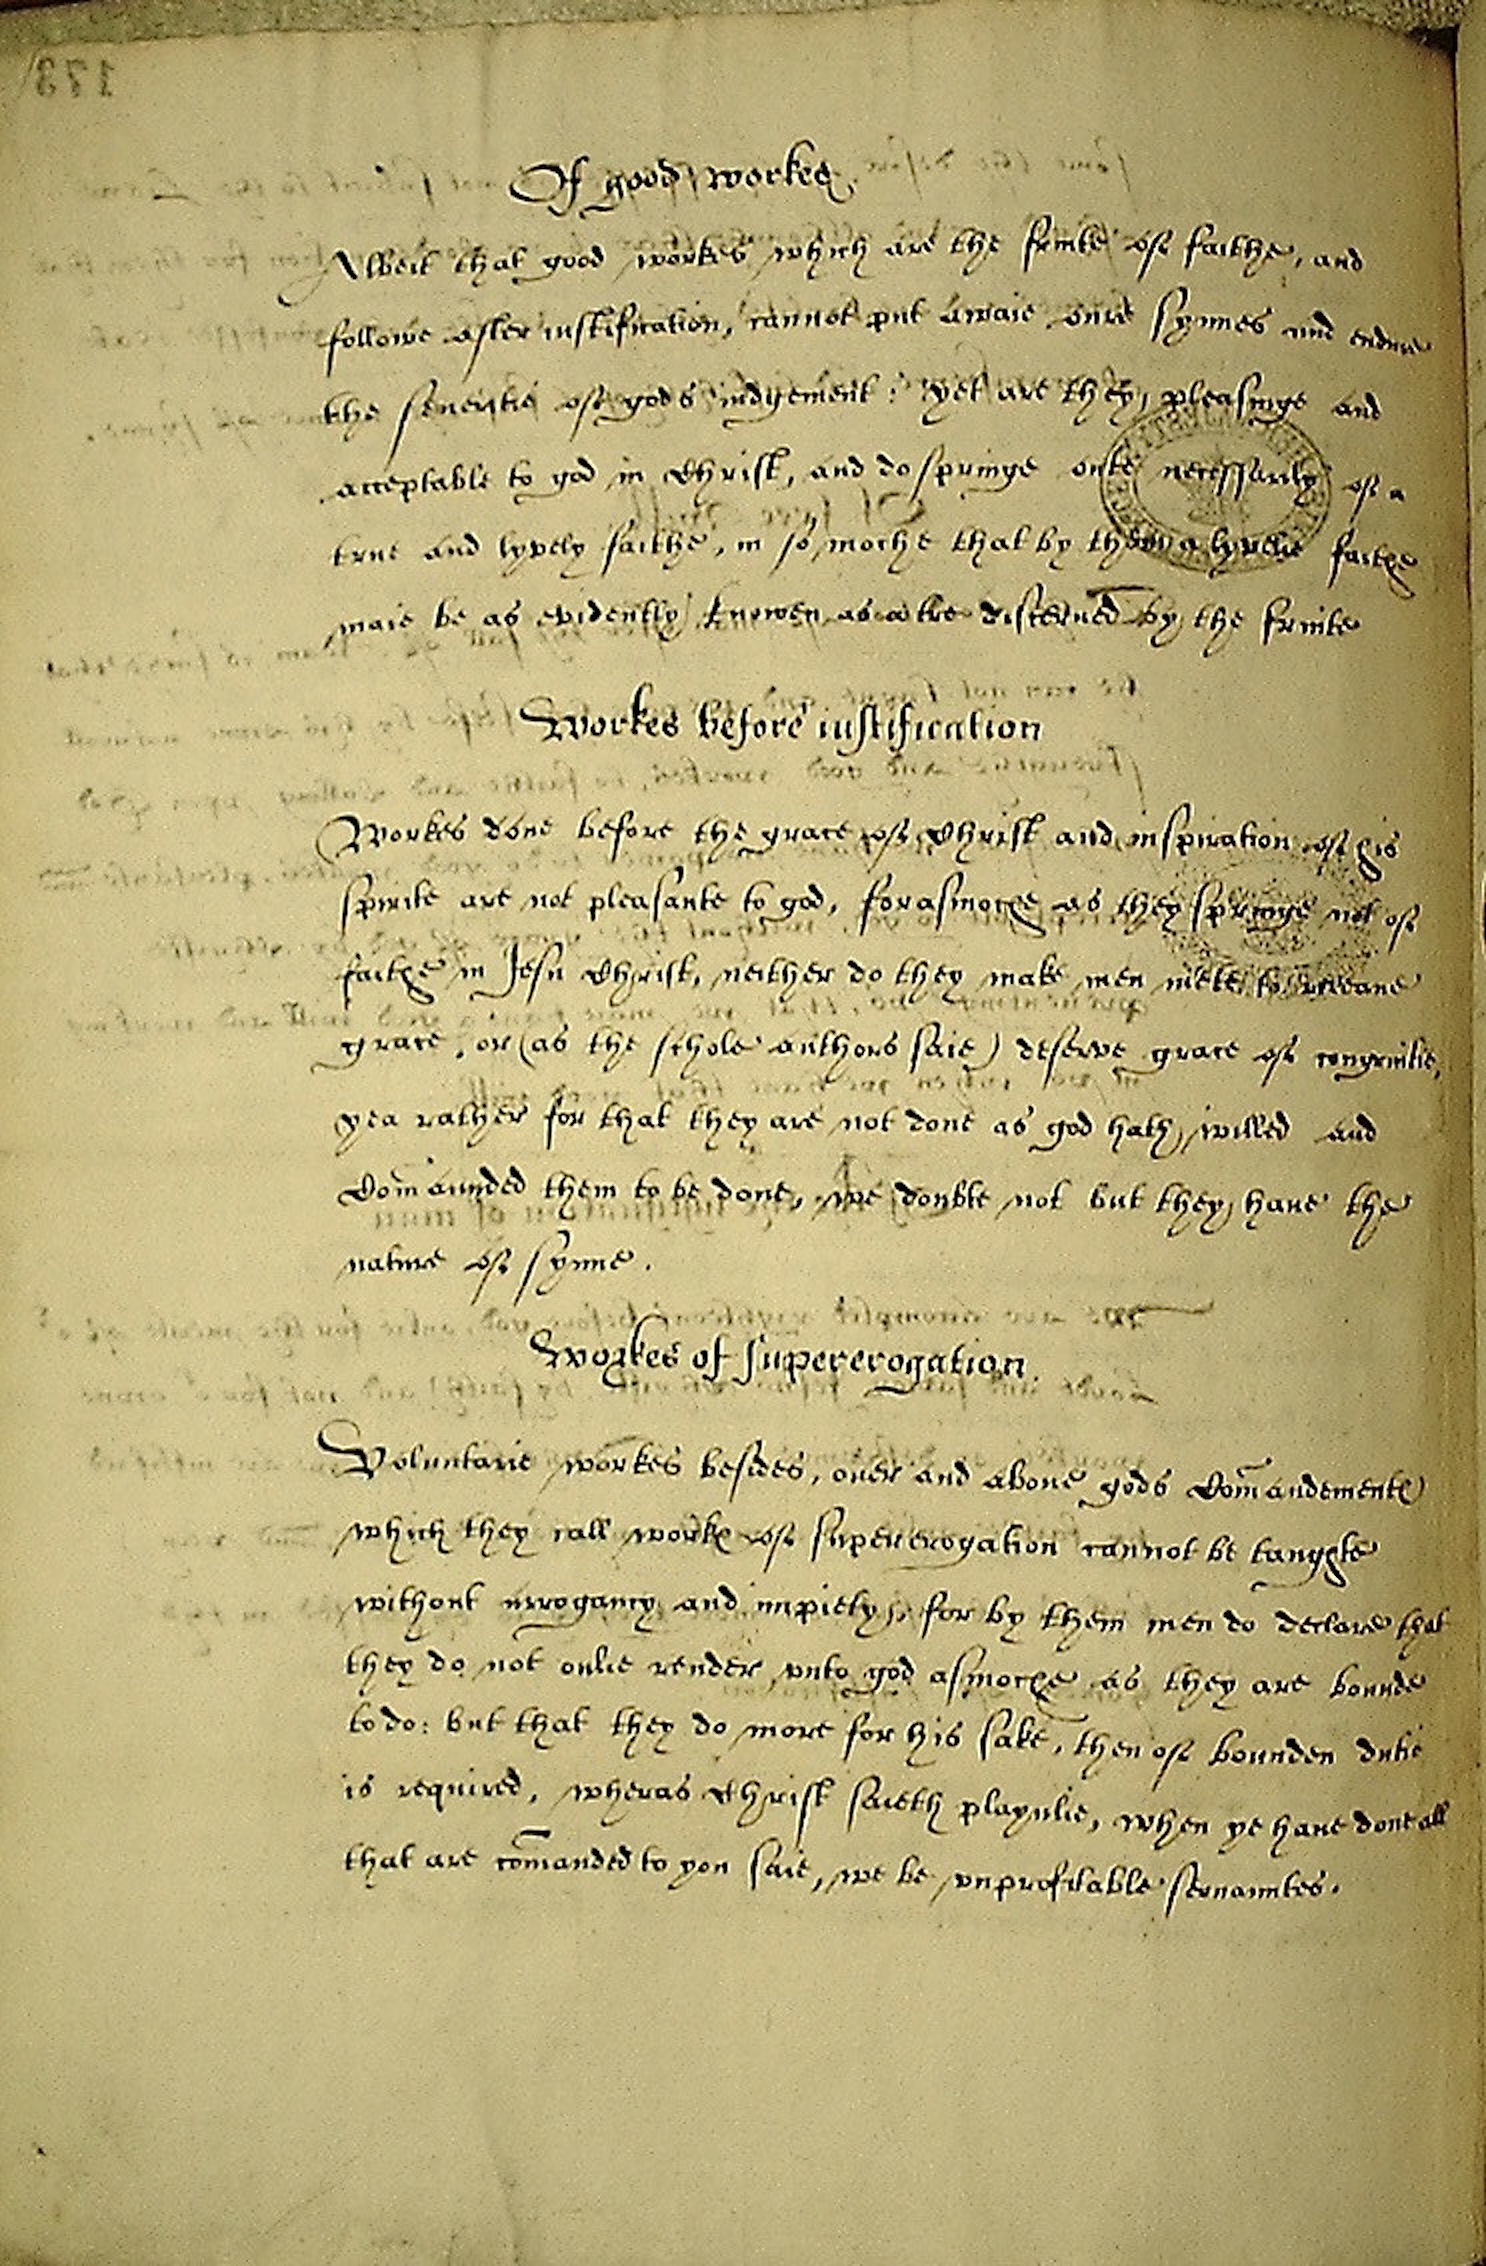 Of good workes
Albeit that good workes which are the fruite of faithe, and
followe after iustification, cannot put awaie oure synnes and endure
the seueritie of gods iudgement: yet are they pleasinge and
acceptable to god in Christ, and do springe oute necessarily of a
true and lyvely faithe, in so moche that by them a lyvelie faithe
maie be as evidently knowen as a tree discerned by the fruite
Workes before iustification
Workes done before the grace of Christ and inspiration of his
spirite are not pleasante to god, forasmoche as they springe not of
faithe in Jesu Christ, neither do they make men mete to receaue
grace, or (as the schole authors saie) deserve grace of congruitie,
yea rather for that they are not done as god hath willed and
Comaunded them to be done, we doubte not but they haue the
nature of synne.
Workes of supererogation
Voluntarie workes besides, ouer and aboue gods Comandementes
which they call workes of supererogation cannot be taughte
without arrogancy and impiety, for by them men do declare that
they do not onlie render vnto god asmoche as they are bounde
to do: but that they do more for his sake, then of bounden dutie
is required, wheras Christ saieth playnlie, when ye haue done all
that are comanded to you saie, we be vnprofitable seruauntes.